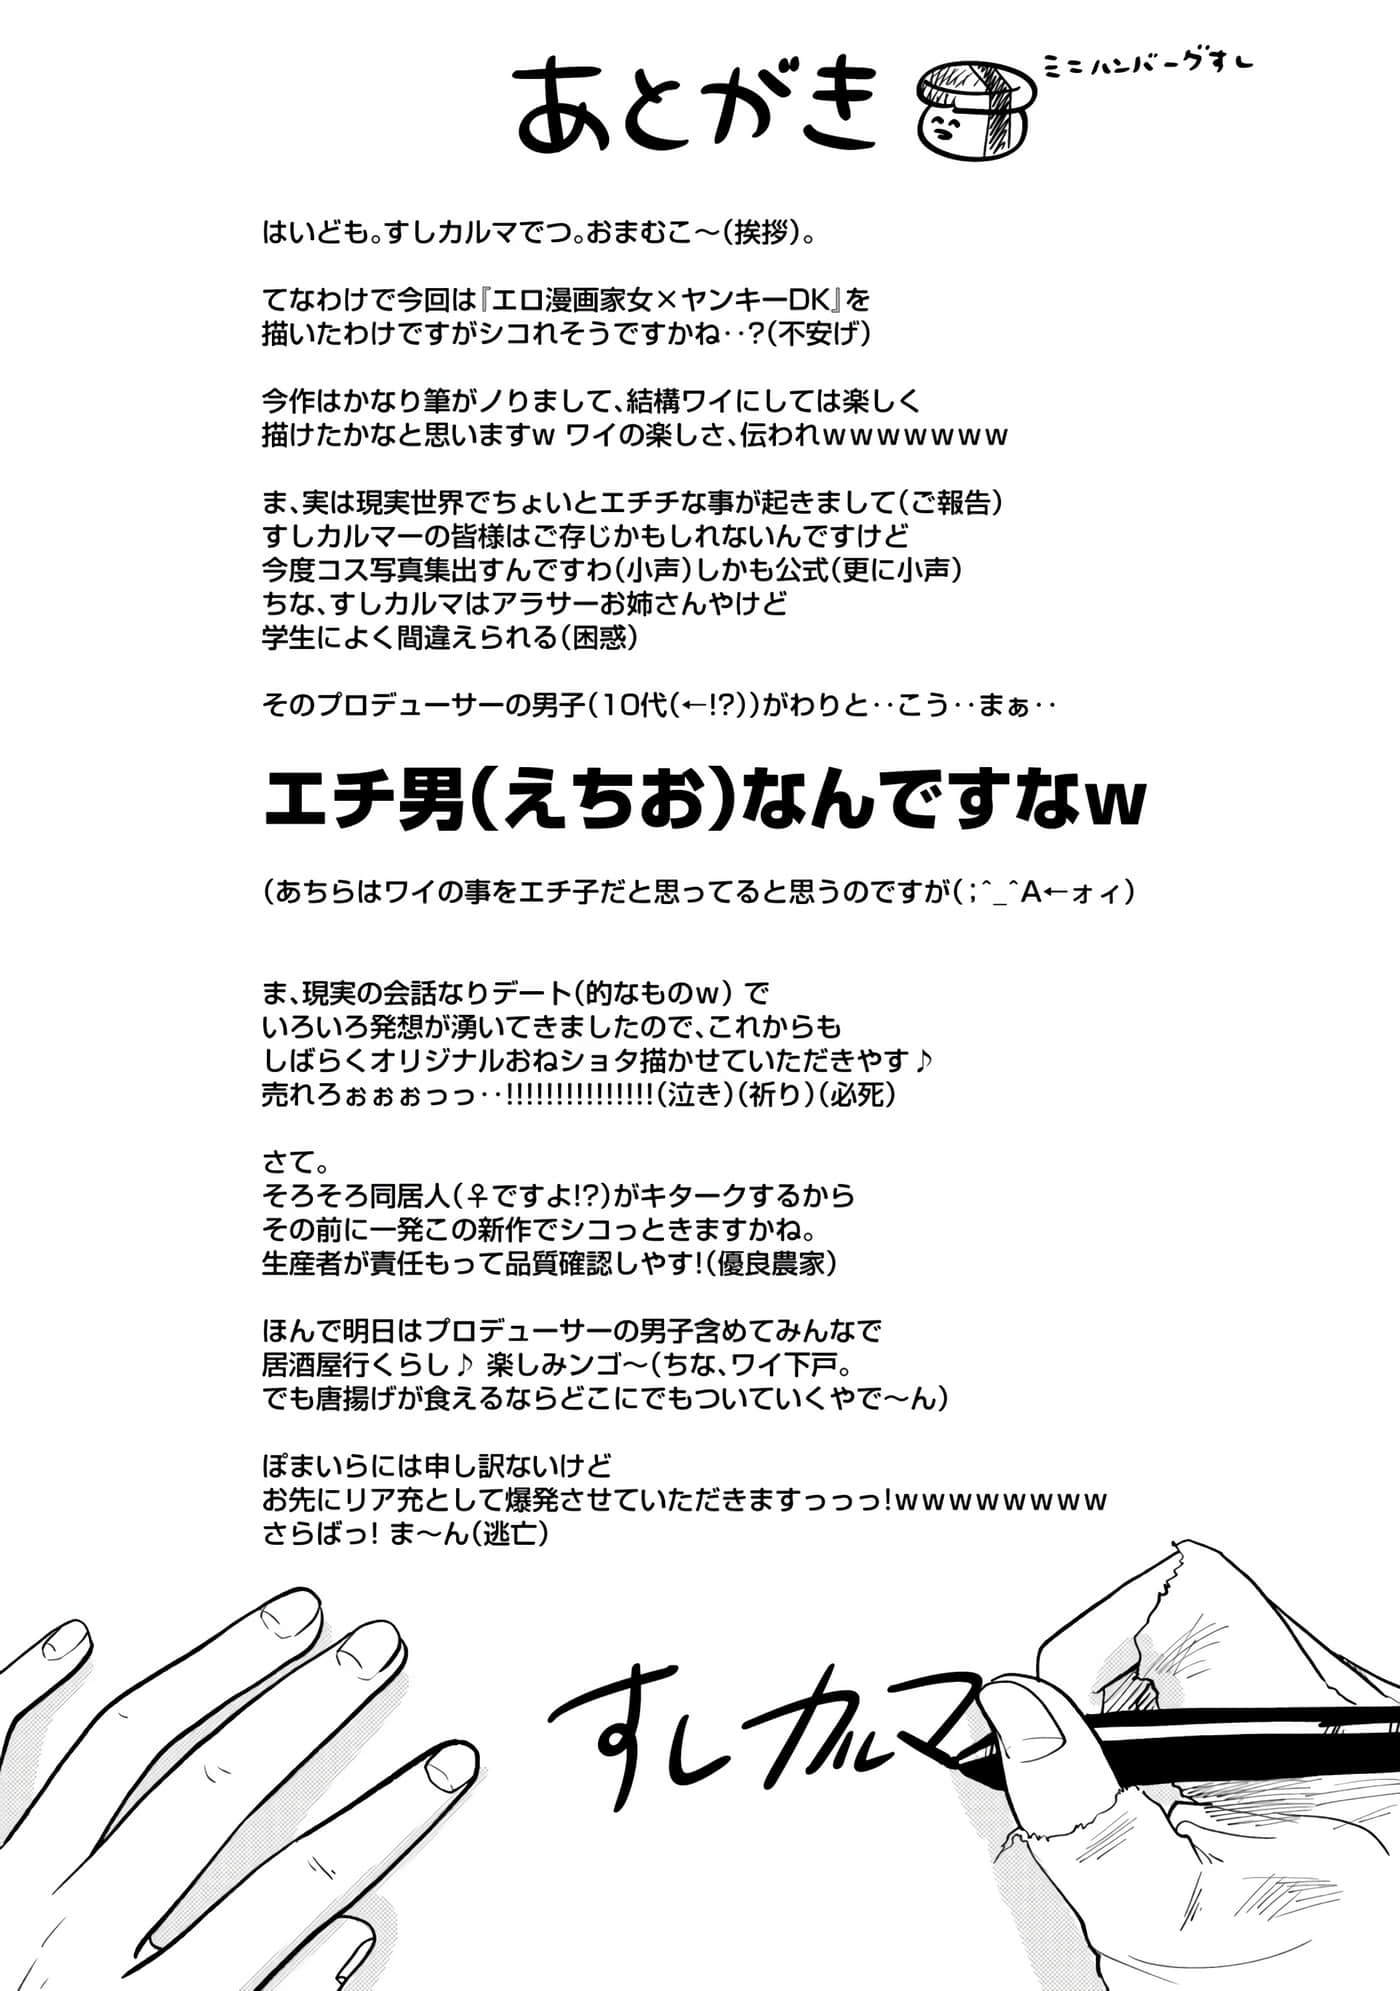 あとがき
ミニハンバーグすし
はいども。すしカルマでつ。おまむこ～(挨拶)。
てなわけで今回は『エロ漫画家女×ヤンキーDK』を
描いたわけですがシコれそうですかね‥?(不安げ)
今作はかなり筆がノりまして、結構ワイにしては楽しく
描けたかなと思いますw ワイの楽しさ、伝われwwwwwww
ま、実は現実世界でちょいとエチチな事が起きまして(ご報告)
すしカルマーの皆様はご存じかもしれないんですけど
今度コス写真集出すんですわ(小声)しかも公式(更に小声)
ちな、すしカルマはアラサーお姉さんやけど
学生によく間違えられる(困惑)
そのプロデューサーの男子(10代(←!?))がわりと‥こう‥まぁ‥
エチ男(えちお)なんですなw
(あちらはワイの事をエチ子だと思ってると思うのですが(;^_^A←ォィ)
ま、現実の会話なりデート(的なものw) で
いろいろ発想が湧いてきましたので、これからも
しばらくオリジナルおねショタ描かせていただきやす♪
売れろぉぉぉっっ‥!!!!!!!!!!!!!!!(泣き)(祈り)(必死)
さて。
そろそろ同居人(♀ですよ!?)がキタークするから
その前に一発この新作でシコっときますかね。
生産者が責任もって品質確認しやす!(優良農家)
ほんで明日はプロデューサーの男子含めてみんなで
居酒屋行くらし♪ 楽しみンゴ～(ちな、ワイ下戸。
でも唐揚げが食えるならどこにでもついていくやで～ん)
ぽまいらには申し訳ないけど
お先にリア充として爆発させていただきますっっっ!wwwwwwww
さらばっ! ま～ん(逃亡)
すしカルマ